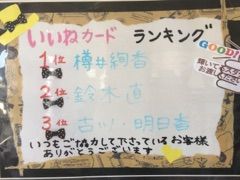 いいねカード ランキング
GOOD!
1位 樽井絢香
2位 鈴木直
3位 古川明日香
いつもご協力して下さっているお客様
ありがとうございます